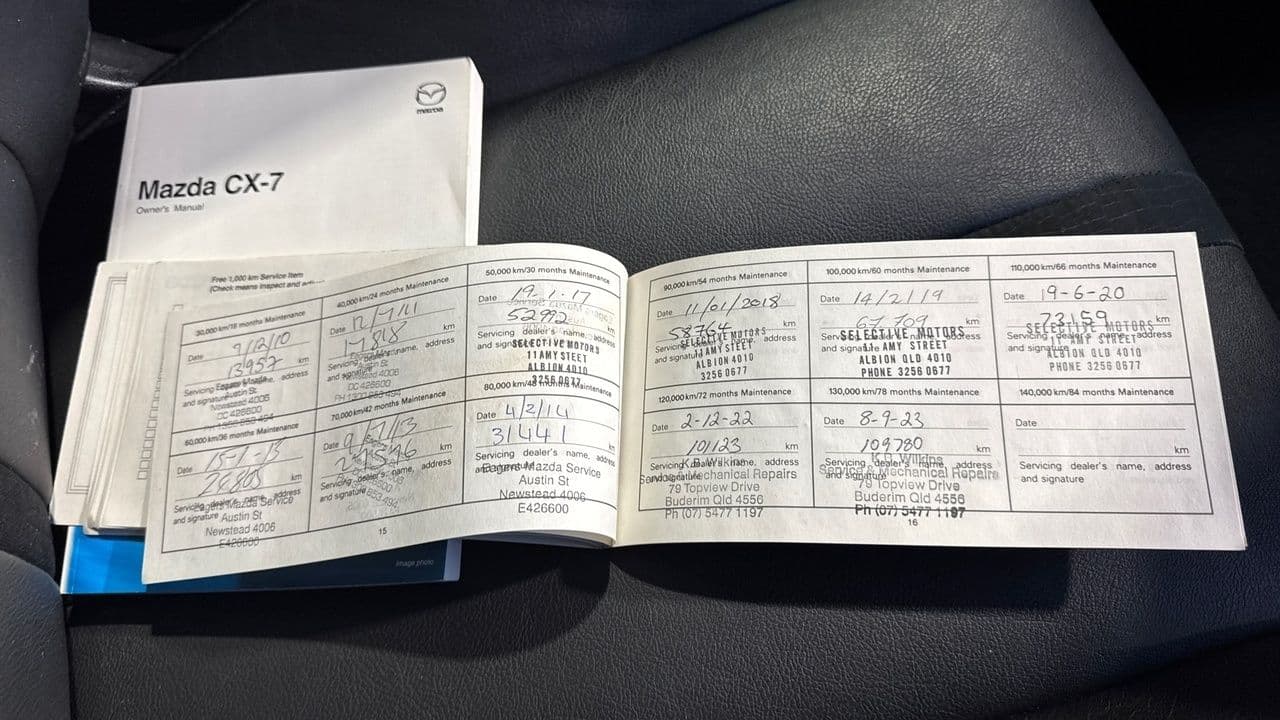 mazda
Mazda CX-7
Owner's Manual
Free 1,000 km Service Item
(Check means inspect and
30,000 km/18 months Maintenance
Date 9/12/10
13957 km
Servicing dealer's name, address
and signature
Austin St
Newstead 4006
DC 426600
40,000 km/24 months Maintenance
Date 12/7/11
17818 km
Servicing dealer's name, address
and signature
Austin St
Newstead 4006
DC 426600
50,000 km/30 months Maintenance
Date 19-1-17
52992
Servicing dealer's name, address
and signature
SELECTIVE MOTORS
11 AMY STREET
ALBION 4010
3256 0677
60,000 km/36 months Maintenance
Date 15-1-13
26805 km
Servicing dealer's name, address
and signature
Eagers Mazda Service
Austin St
Newstead 4006
E426600
70,000 km/42 months Maintenance
Date 9/7/13
km
Servicing dealer's name, address
and signature
80,000 km/48 months Maintenance
Date 4/2/14
31441 km
Servicing dealer's name, address
and signature
Eagers Mazda Service
Austin St
Newstead 4006
E426600
15
image photo
90,000 km/54 months Maintenance
Date 11/01/2018
58764 km
Servicing dealer's name, address
and signature
SELECTIVE MOTORS
11 AMY STREET
ALBION 4010
3256 0677
100,000 km/60 months Maintenance
Date 14/2/19
67709 km
Servicing dealer's name, address
and signature
SELECTIVE MOTORS
AMY STREET
ALBION QLD 4010
PHONE 3256 0677
110,000 km/66 months Maintenance
Date 19-6-20
73159 km
Servicing dealer's name, address
and signature
SELECTIVE MOTORS
AMY STREET
ALBION QLD 4010
PHONE 3256 0677
120,000 km/72 months Maintenance
Date 2-12-22
101123 km
Servicing dealer's name, address
and signature
K.B. Wilkins
Service & Mechanical Repairs
79 Topview Drive
Buderim Qld 4556
Ph (07) 5477 1197
130,000 km/78 months Maintenance
Date 8-9-23
109780 km
Servicing dealer's name, address
and signature
K.B. Wilkins
Service & Mechanical Repairs
79 Topview Drive
Buderim Qld 4556
Ph (07) 5477 1197
140,000 km/84 months Maintenance
Date
km
Servicing dealer's name, address
and signature
16